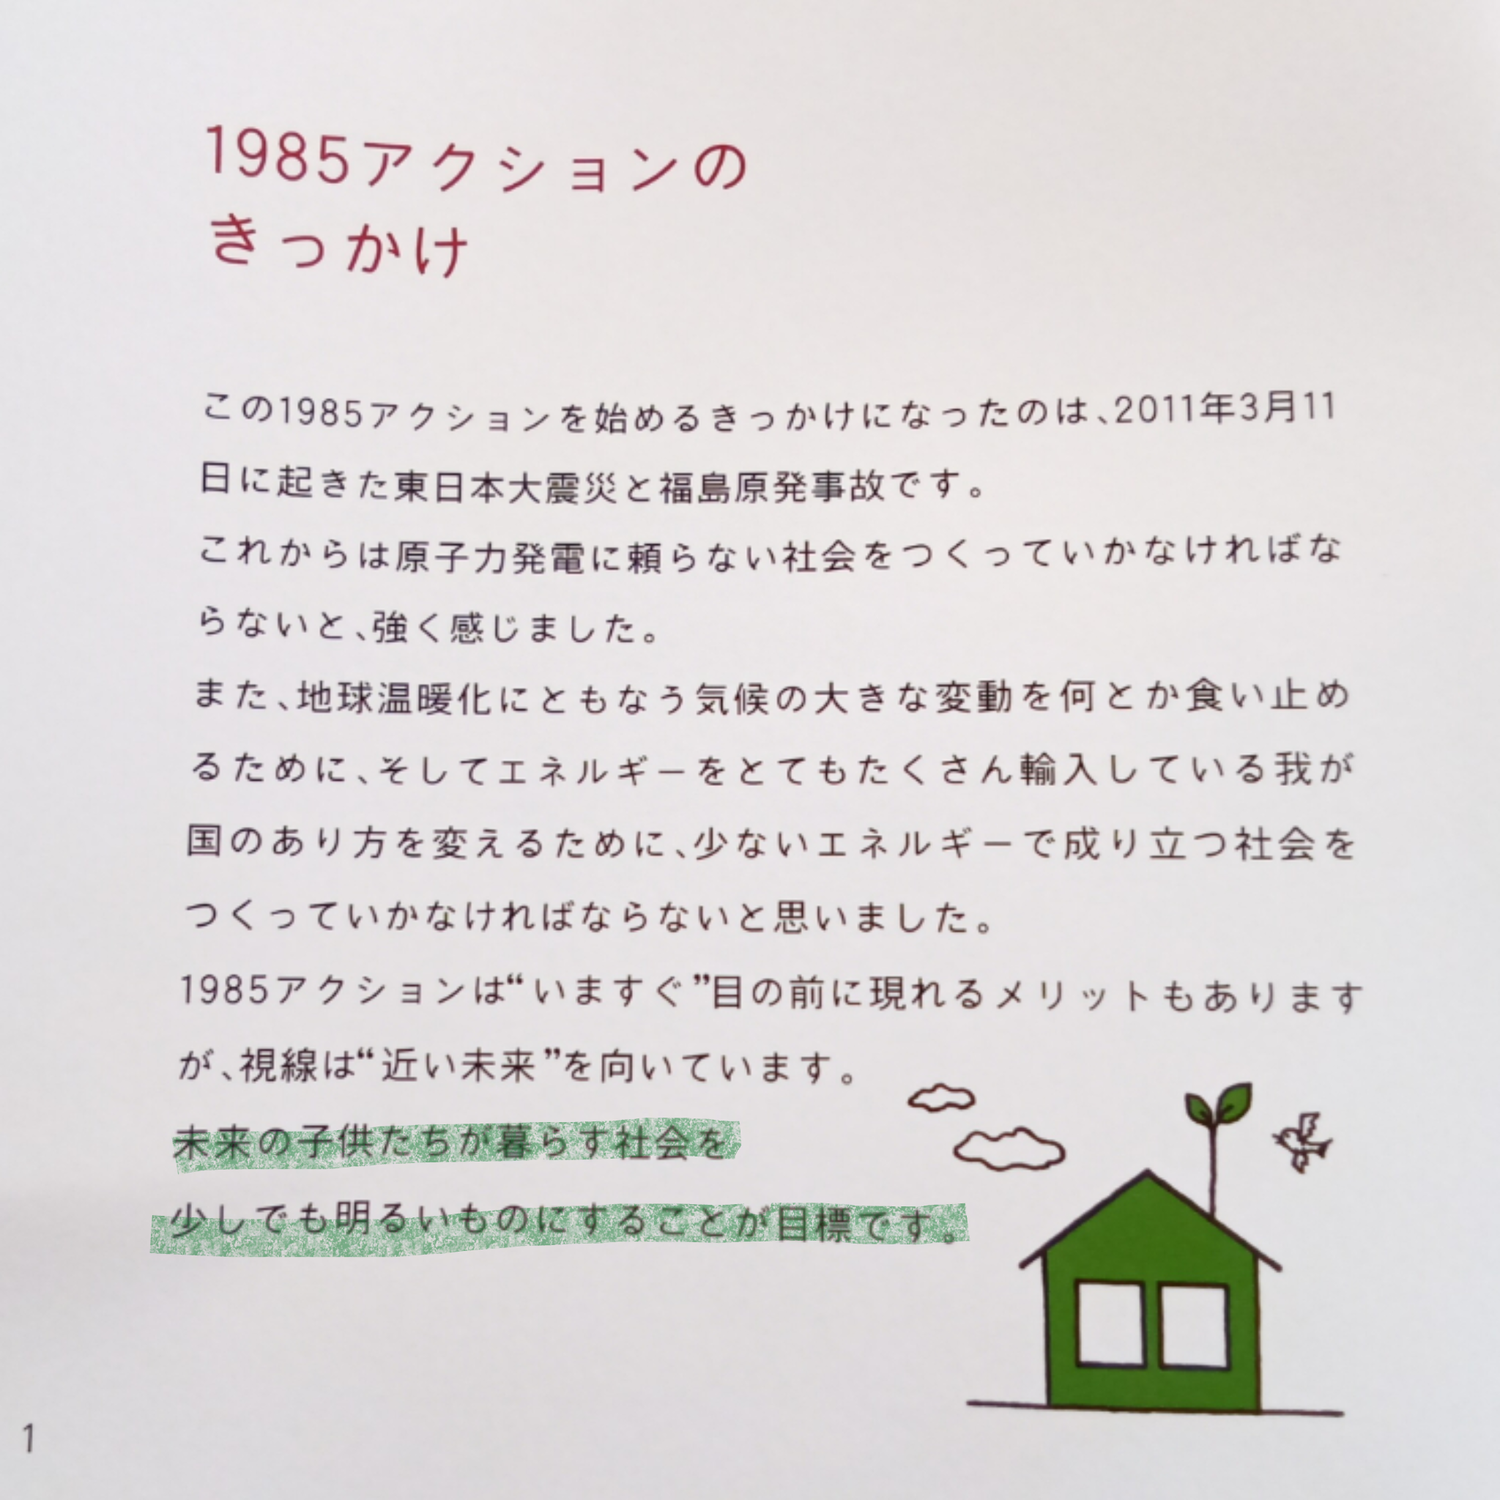 1985アクションの
きっかけ
この1985アクションを始めるきっかけになったのは、2011年3月11
日に起きた東日本大震災と福島原発事故です。
これからは原子力発電に頼らない社会をつくっていかなければな
らないと、強く感じました。
また、地球温暖化にともなう気候の大きな変動を何とか食い止め
るために、そしてエネルギーをとてもたくさん輸入している我が
国のあり方を変えるために、少ないエネルギーで成り立つ社会を
つくっていかなければならないと思いました。
1985アクションは“いますぐ”目の前に現れるメリットもあります
が、視線は“近い未来”を向いています。
未来の子供たちが暮らす社会を
少しでも明るいものにすることが目標です。
1